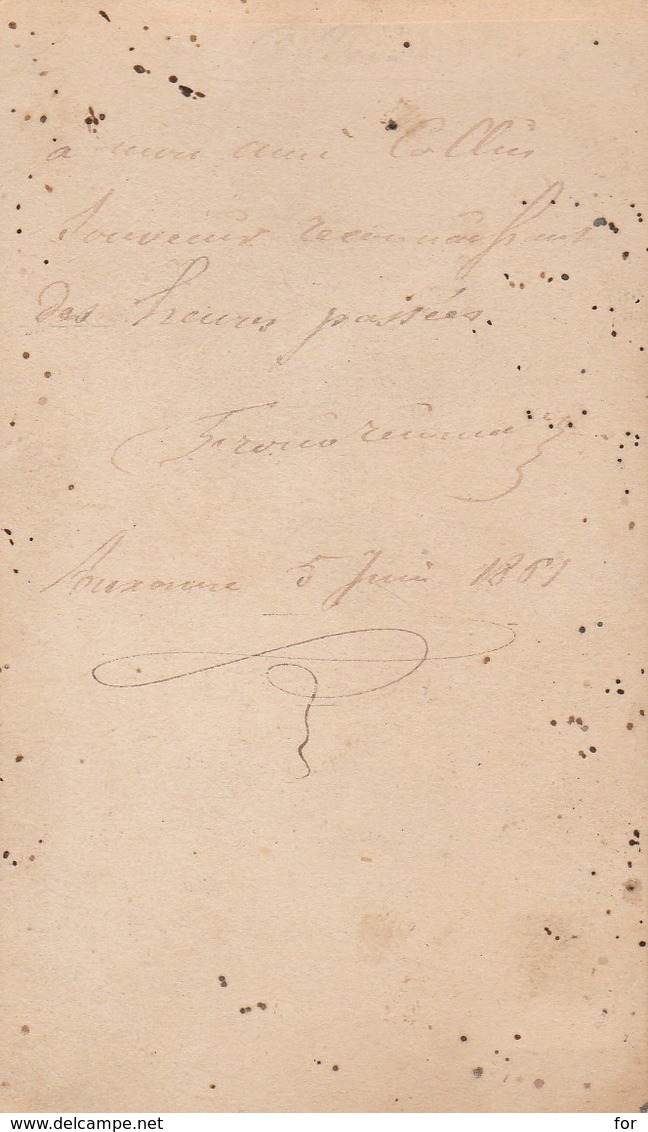 à mon ami Collin
Souvenir reconnaissant
des heures passées
Auxonne 5 Juin 1861
www.delcampe.net
for